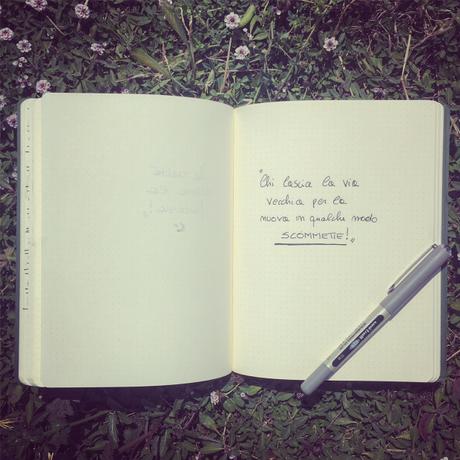 "Chi lascia la via
vecchia per la
nuova in qualche modo
SCOMMETTE!"